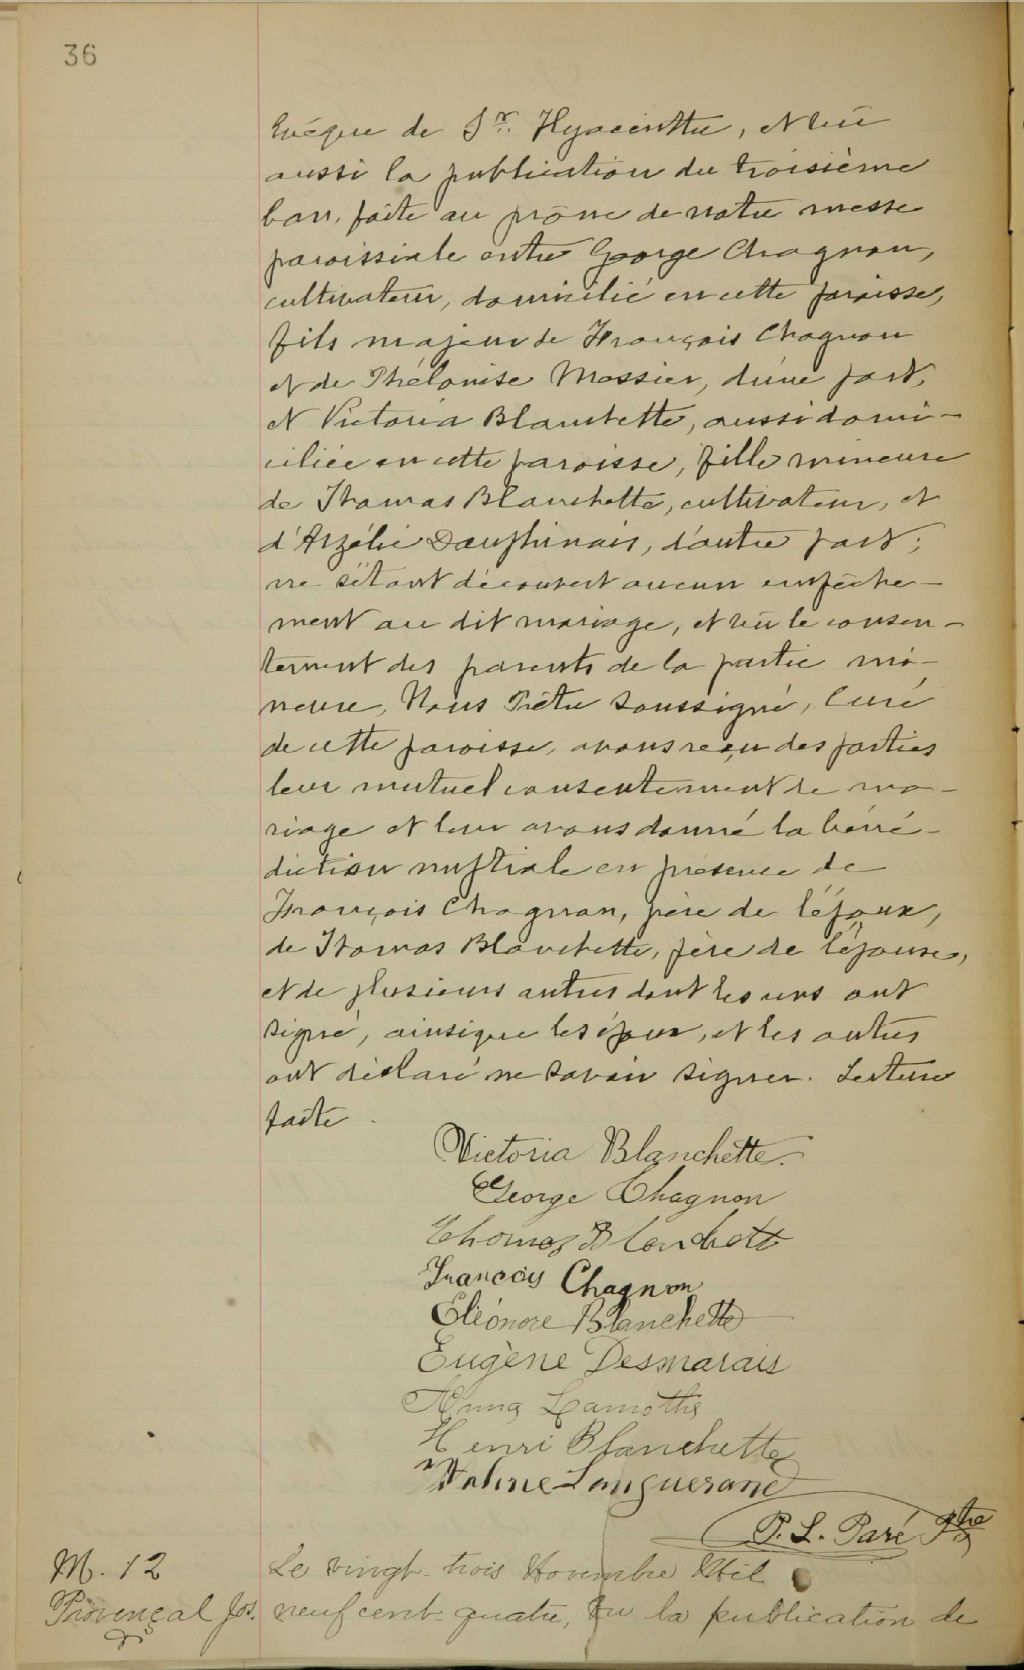 36
Evêque de St. Hyacinthe, et vû
aussi la publication du troisième
ban, faite au prône de notre messe
paroissiale entre George Chagnon,
cultivateur, domicilié en cette paroisse,
fils majeur de François Chagnon
et de Phélonise Messier, d'une part,
et Victoria Blanchette, aussi domi-
ciliée en cette paroisse, fille mineure
de Thomas Blanchette, cultivateur, et
d'Arzélie Dauphinais, d'autre part;
ne s'étant découvert aucun empêche-
ment au dit mariage, et vû le consen-
tement des parents de la partie mi-
neure, Nous Prêtre soussigné, Curé
de cette paroisse, avons reçu des parties
leur mutuel consentement de ma-
riage et leur avons donné la béné-
diction nuptiale en présence de
François Chagnon, père de l'époux,
de Thomas Blanchette, père de l'épouse,
et de plusieurs autres dont les uns ont
signé, ainsi que les époux, et les autres
ont déclaré ne savoir signer. Lecture
faite.
Victoria Blanchette.
George Chagnon
Thomas Blanchett
Francois Chagnon
Eléonore Blanchette
Eugène Desmarais
Anna Lamothe
Henri Blanchette
Languerand
P. L. Paré Ptre
M. 12
Le vingt-trois Novembre Mil
Provençal Jos.
neuf cent quatre, Vu la publication de